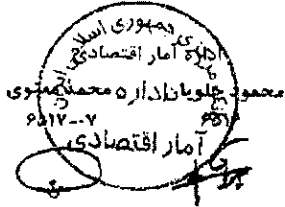 جمهوری اسلامی
اداره آمار اقتصادی
محمود علویان اداره محمد مهدوی
۶۵۱۷--۷
آمار اقتصادی